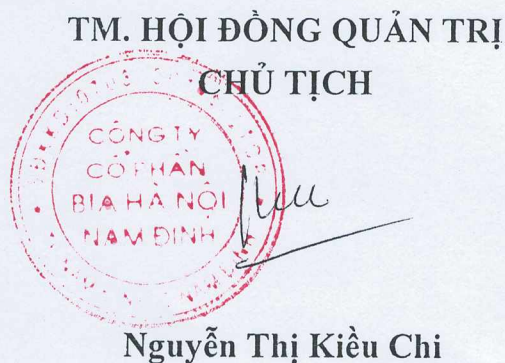 TM. HỘI ĐỒNG QUẢN TRỊ
CHỦ TỊCH
CÔNG TY
CỔ PHẦN
BIA HÀ NỘI
NAM ĐỊNH
Nguyễn Thị Kiều Chi